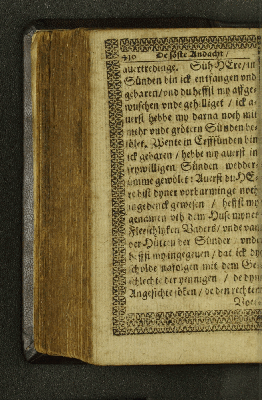 De söste Andacht /
auertredinge. Süh HEre / in
Sünden bin ick entfangen vnd
gebaren / vnd du heffst my affge-
wuschen vnde gehilliget / ick a-
uerst hebbe my darna noch mit
mehr vnde grötern Sünden be-
Wente in Erffsünden bin
ick gebaren / hebbe my auerst in
frywilligen Sünden wedder-
ümme gewöltet: Auerst du HE-
re bist dyner vorbarminge noch
ingedenck gewesen / heffst my
genamen vth dem Huse mynes
Fleeschlyken Vaders / vnde van
der Hütten der Sünder / vnde
heffst my ingegeuen / dat ick dy
scholde nafolgen mit dem Ge-
schlechte der yennigen / de dyn
Angesichte söken / de den rechten